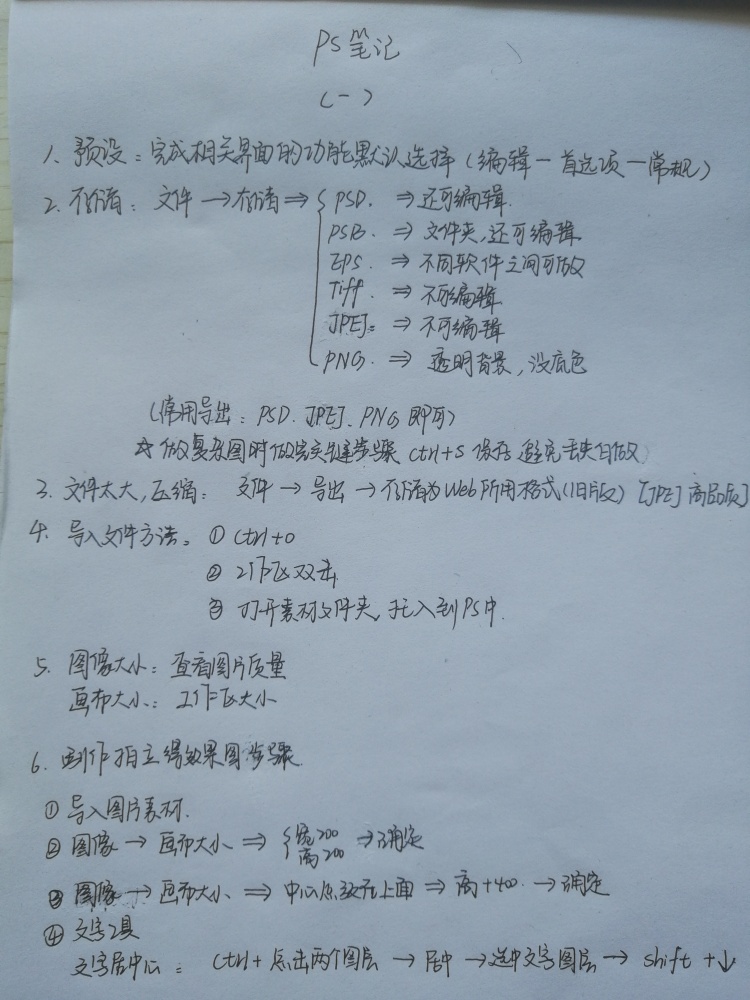 PS笔记
(一)
1、预设：完成相关界面的功能默认选择（编辑—首选项—常规）
2、存储：文件→存储⇒{PSD. ⇒还可编辑.
PSB. ⇒文件夹,还可编辑
EPS. ⇒不同软件之间可做
Tiff. ⇒不可编辑
JPEJ. ⇒不可编辑
PNG. ⇒透明背景,没底色
(常用导出：PSD. JPEJ. PNG 即可)
☆做复杂图时做完关键步骤 ctrl+S 保存 避免丢失白做
3、文件太大,压缩：文件→导出→存储为Web所用格式(旧版)[JPEJ 高品质]
4、导入文件方法。①ctrl+o
②工作区双击
③打开素材文件夹,托入到PS中.
5、图像大小：查看图片质量
画布大小：工作区大小
6、制作拍立得效果图步骤.
①导入图片素材.
②图像→画布大小⇒{宽200 →确定
高200
③图像→画布大小⇒中心点放在上面⇒高+400→确定
④文字工具
文字居中心：ctrl+点击两个图层→居中→选中文字图层→shift+↓